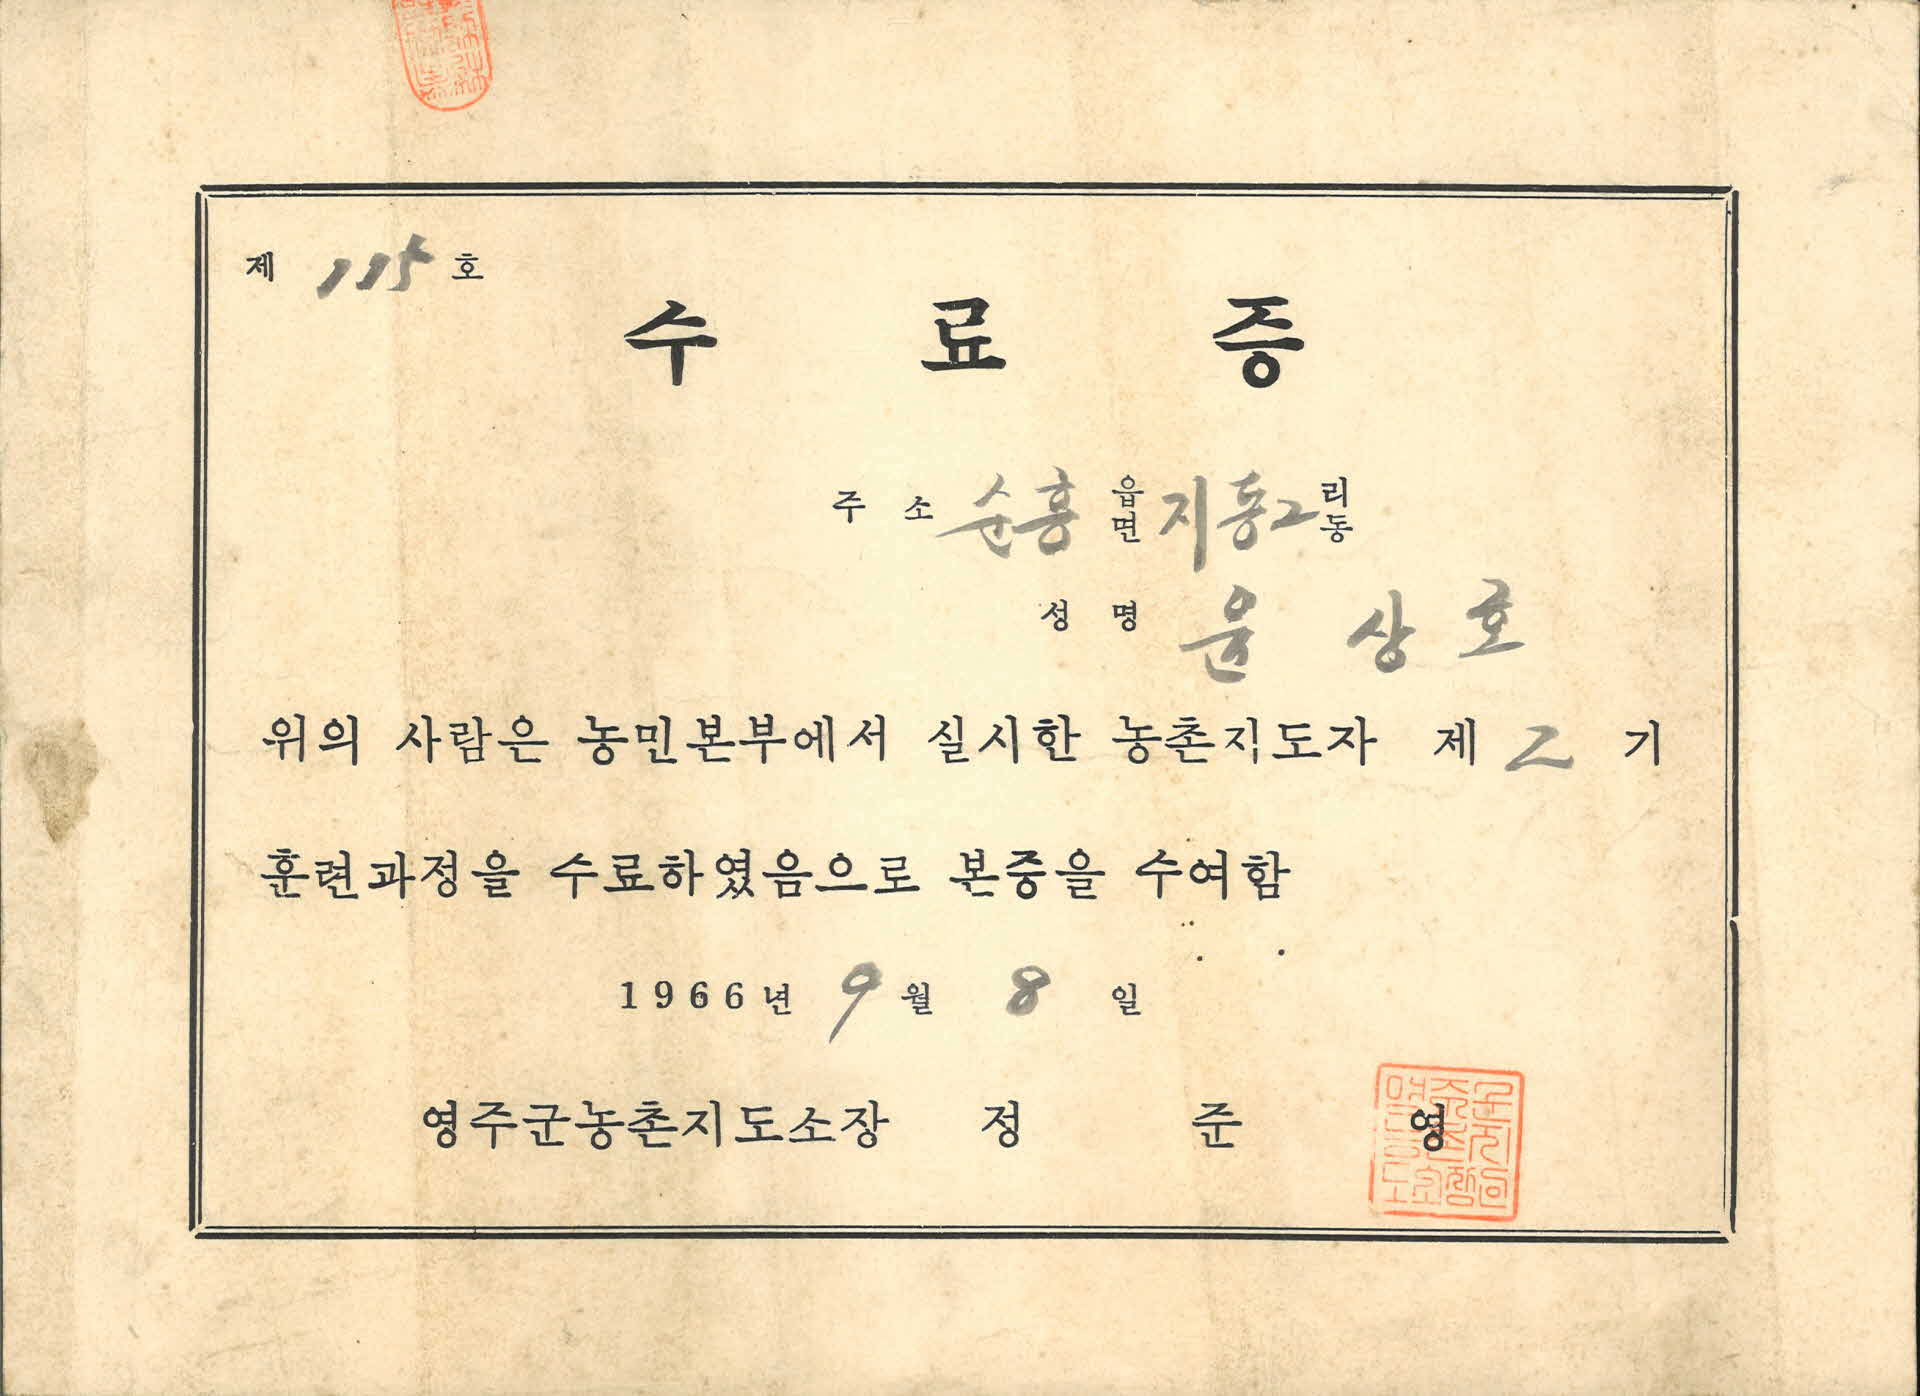 제 115 호
수 료 증
주 소 순흥 읍면 지동2 리동
성 명 윤 상 호
위의 사람은 농민본부에서 실시한 농촌지도자 제 2 기
훈련과정을 수료하였음으로 본증을 수여함
1966년 9월 8일
영주군농촌지도소장 정 준 영